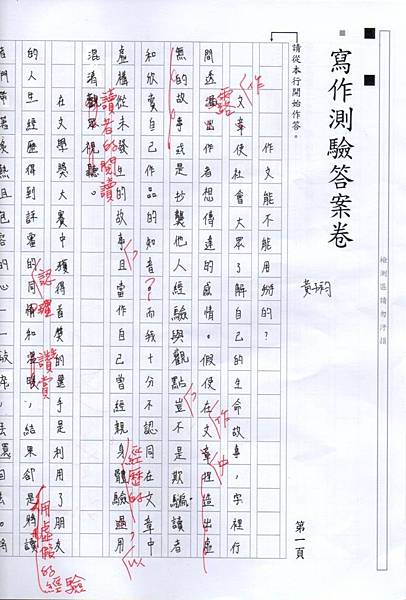 檢測區請勿汙損
寫作測驗答案卷
第一頁
請從本行開始作答。
作文能不能用掰的?
文章使社會大眾了解自己的生命故事,字裡行
作
間透漏出作者想傳達的感情。假使在文章捏造出虛
露
作
中
無的故事或是抄襲他人經驗與觀點豈不是欺騙讀者
和欣賞自己作品的知音?而我十分不認同在文章中
虛構從未發生的故事且當作自己曾經親身體驗過,用
經歷的
以
混淆觀眾視聽。
讀者的閱讀
在文學獎大賽中獲得首獎的選手是利用了朋友
的人生經歷得到評審的同情和溫暖,結果卻是將讀
讚賞
用虛假的經驗